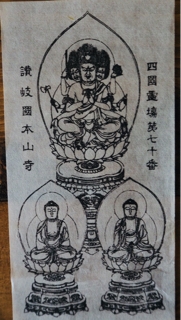 四國霊場第七十番
讃岐國本山寺